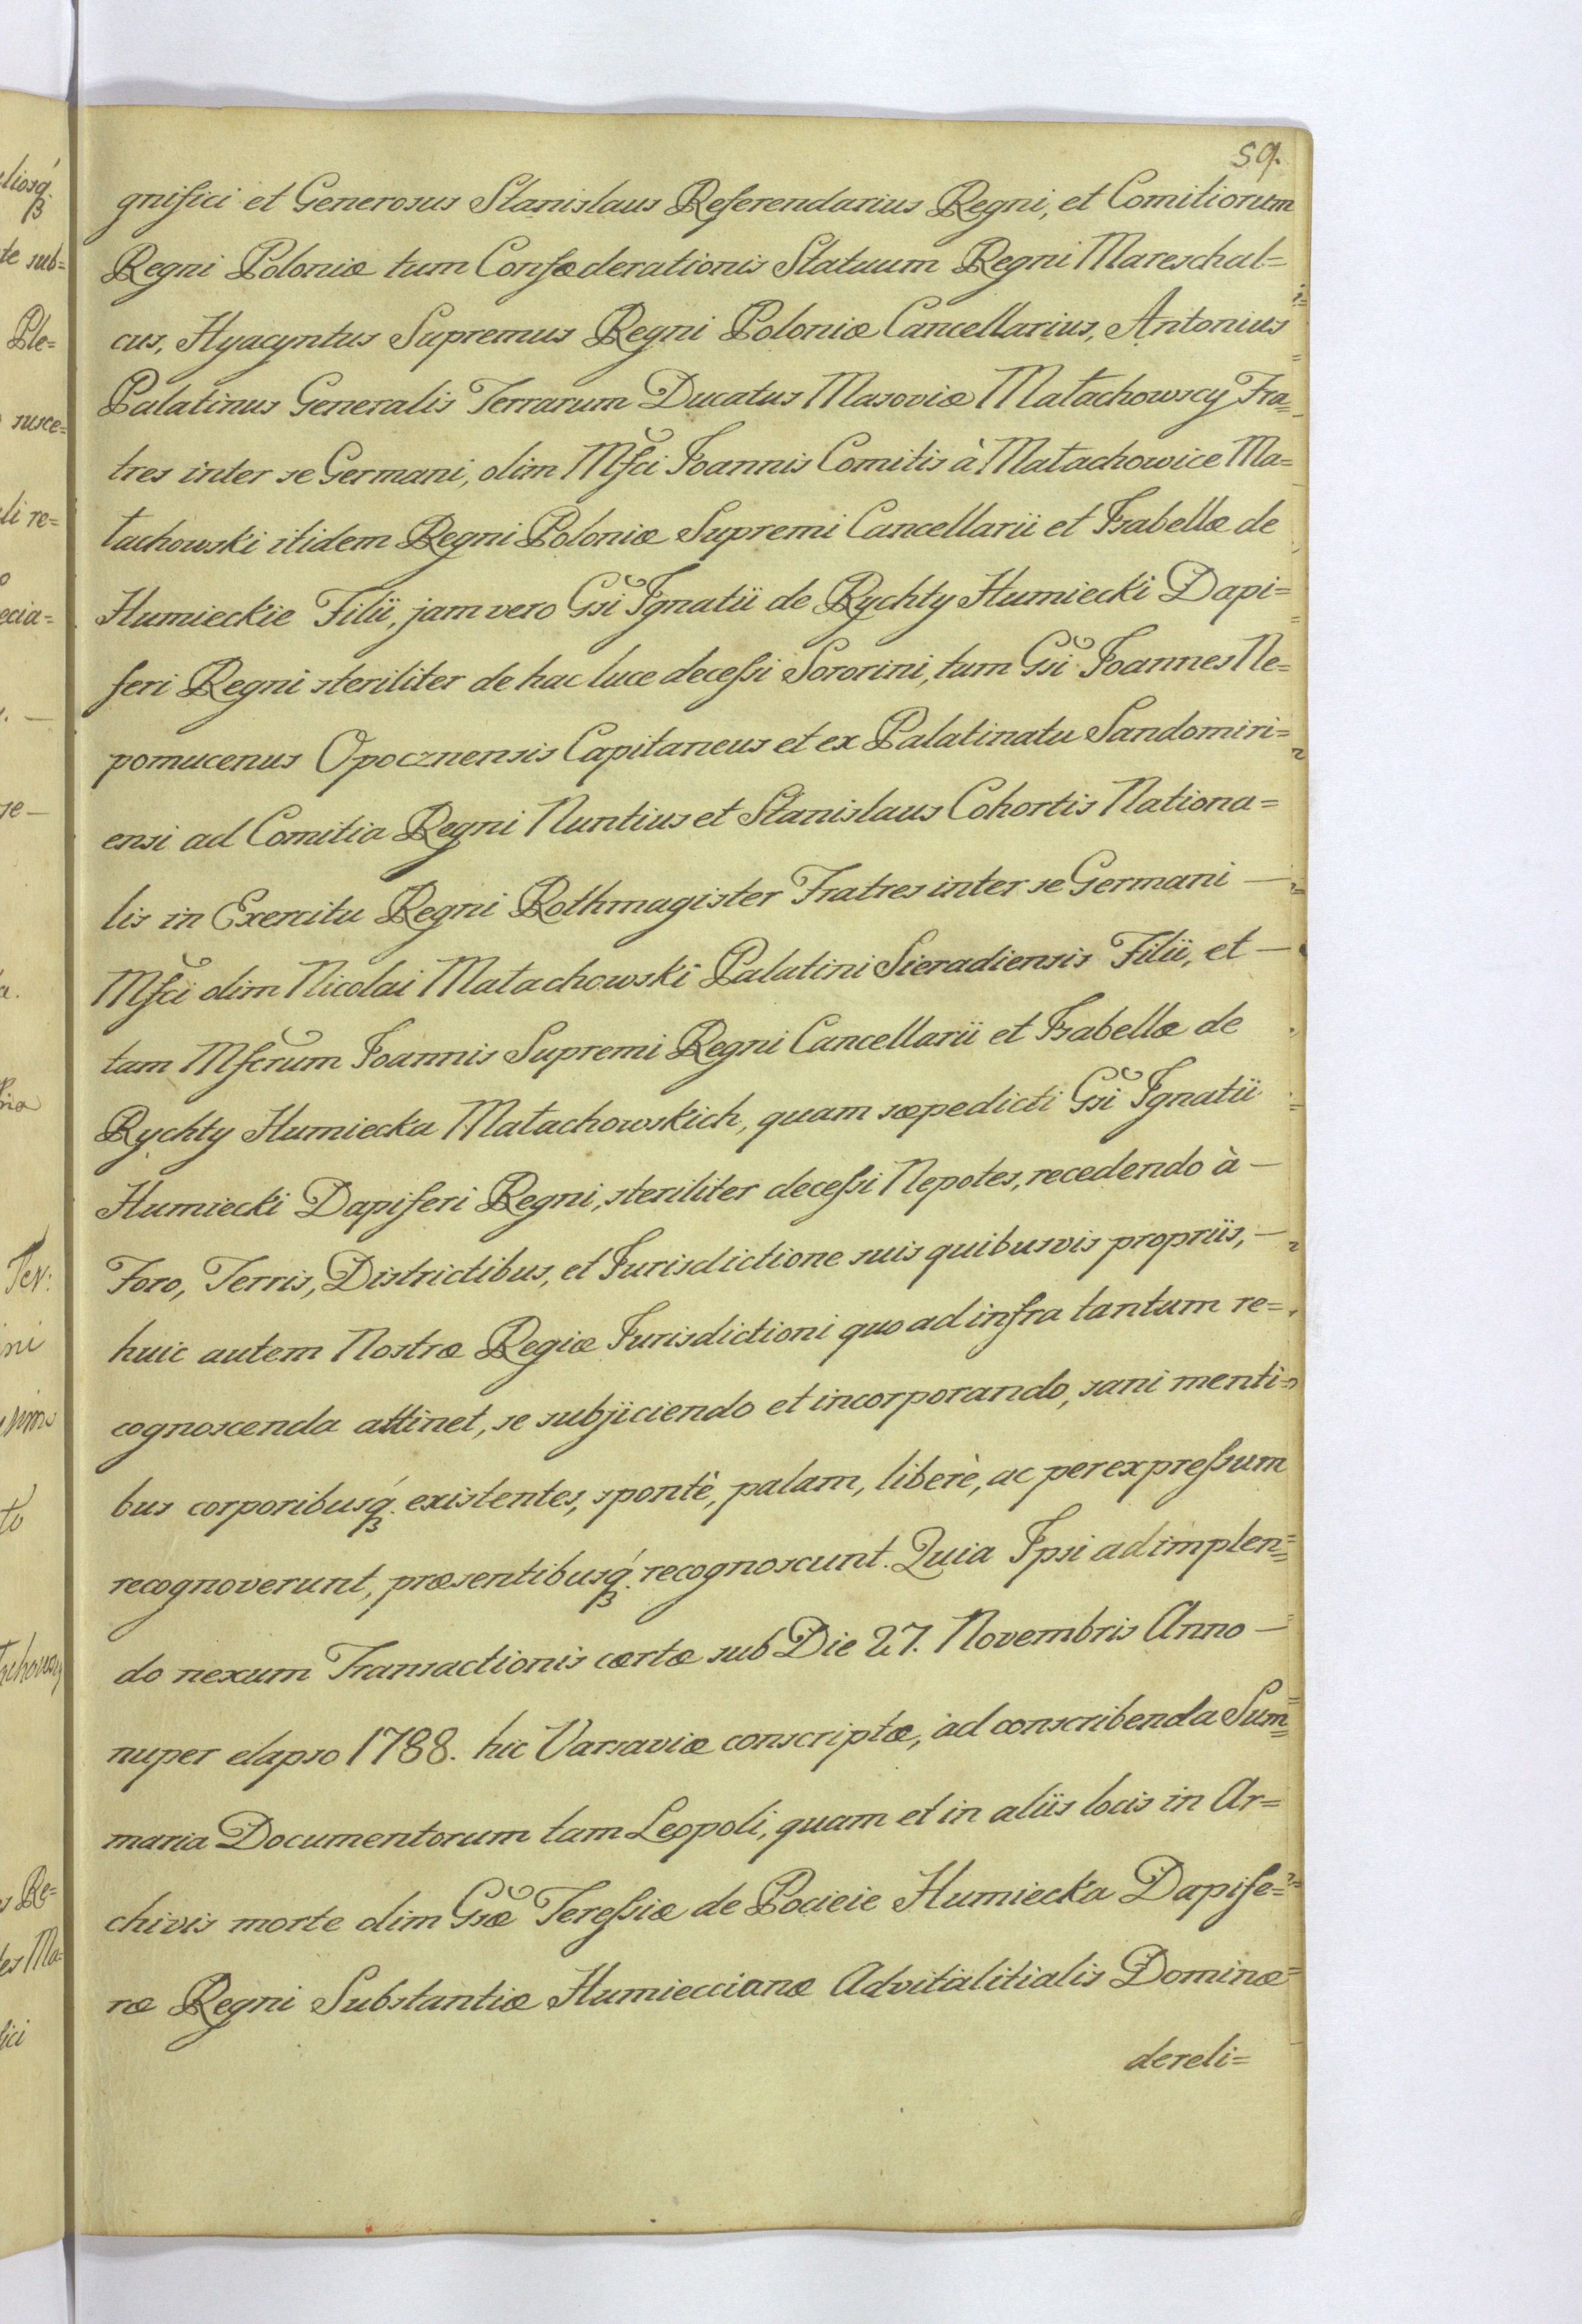 59.
gnifici et Generosus Stanislaus Referendarius Regni, et Comitiorum
Regni Poloniæ tum Confæderationis Statuum Regni Mareschal=
cus, Hyacyntus Supremus Regni Poloniæ Cancellarius, Antonius
Palatinus Generalis Terrarum Ducatus Masoviæ Małachowscy Fra=
tres inter se Germani, olim Mfci Joannis Comitis à Małachowice Ma=
łachowski itidem Regni Poloniæ Supremi Cancellarii et Isabellæ de
Humieckie Filii, jam vero Gsi Ignatii de Rychty Humiecki Dapi=
feri Regni steriliter de hac luce decessi Sororini, tum Gsi Joannes Ne=
pomucenus Opocznensis Capitaneus et ex Palatinatu Sandomiri=
ensi ad Comitia Regni Nuntius et Stanislaus Cohortis Nationa=
lis in Exercitu Regni Rothmagister Fratres inter se Germani —
Mfci olim Nicolai Małachowski Palatini Sieradiensis Filii, et —
tam Mfcrum Joannis Supremi Regni Cancellarii et Isabellæ de
Rychty Humiecka Małachowskich, quam sæpedicti Gsi Ignatii
Humiecki Dapiferi Regni, steriliter decessi Nepotes, recedendo à —
Foro, Terris, Districtibus, et Jurisdictione suis quibusvis propriis, —
huic autem Nostræ Regiæ Jurisdictioni quo ad infra tantum re=
cognoscenda attinet, se subjiciendo et incorporando, sani menti=
bus corporibusq́ existentes, spontè, palam, liberè, ac per expressum
recognoverunt, præsentibusq́ recognoscunt. Quia Ipsi adimplen=
do nexum Transactionis cærtæ sub Die 27. Novembris Anno —
nuper elapso 1788. hic Varsaviæ conscriptæ, ad conscribenda Sum=
maria Documentorum tam Leopoli, quam et in aliis locis in Ar=
chivis morte olim Gsæ Teressiæ de Pocieie Humiecka Dapife=
ræ Regni Substantiæ Humieccianæ Advitalitialis Dominæ
dereli=